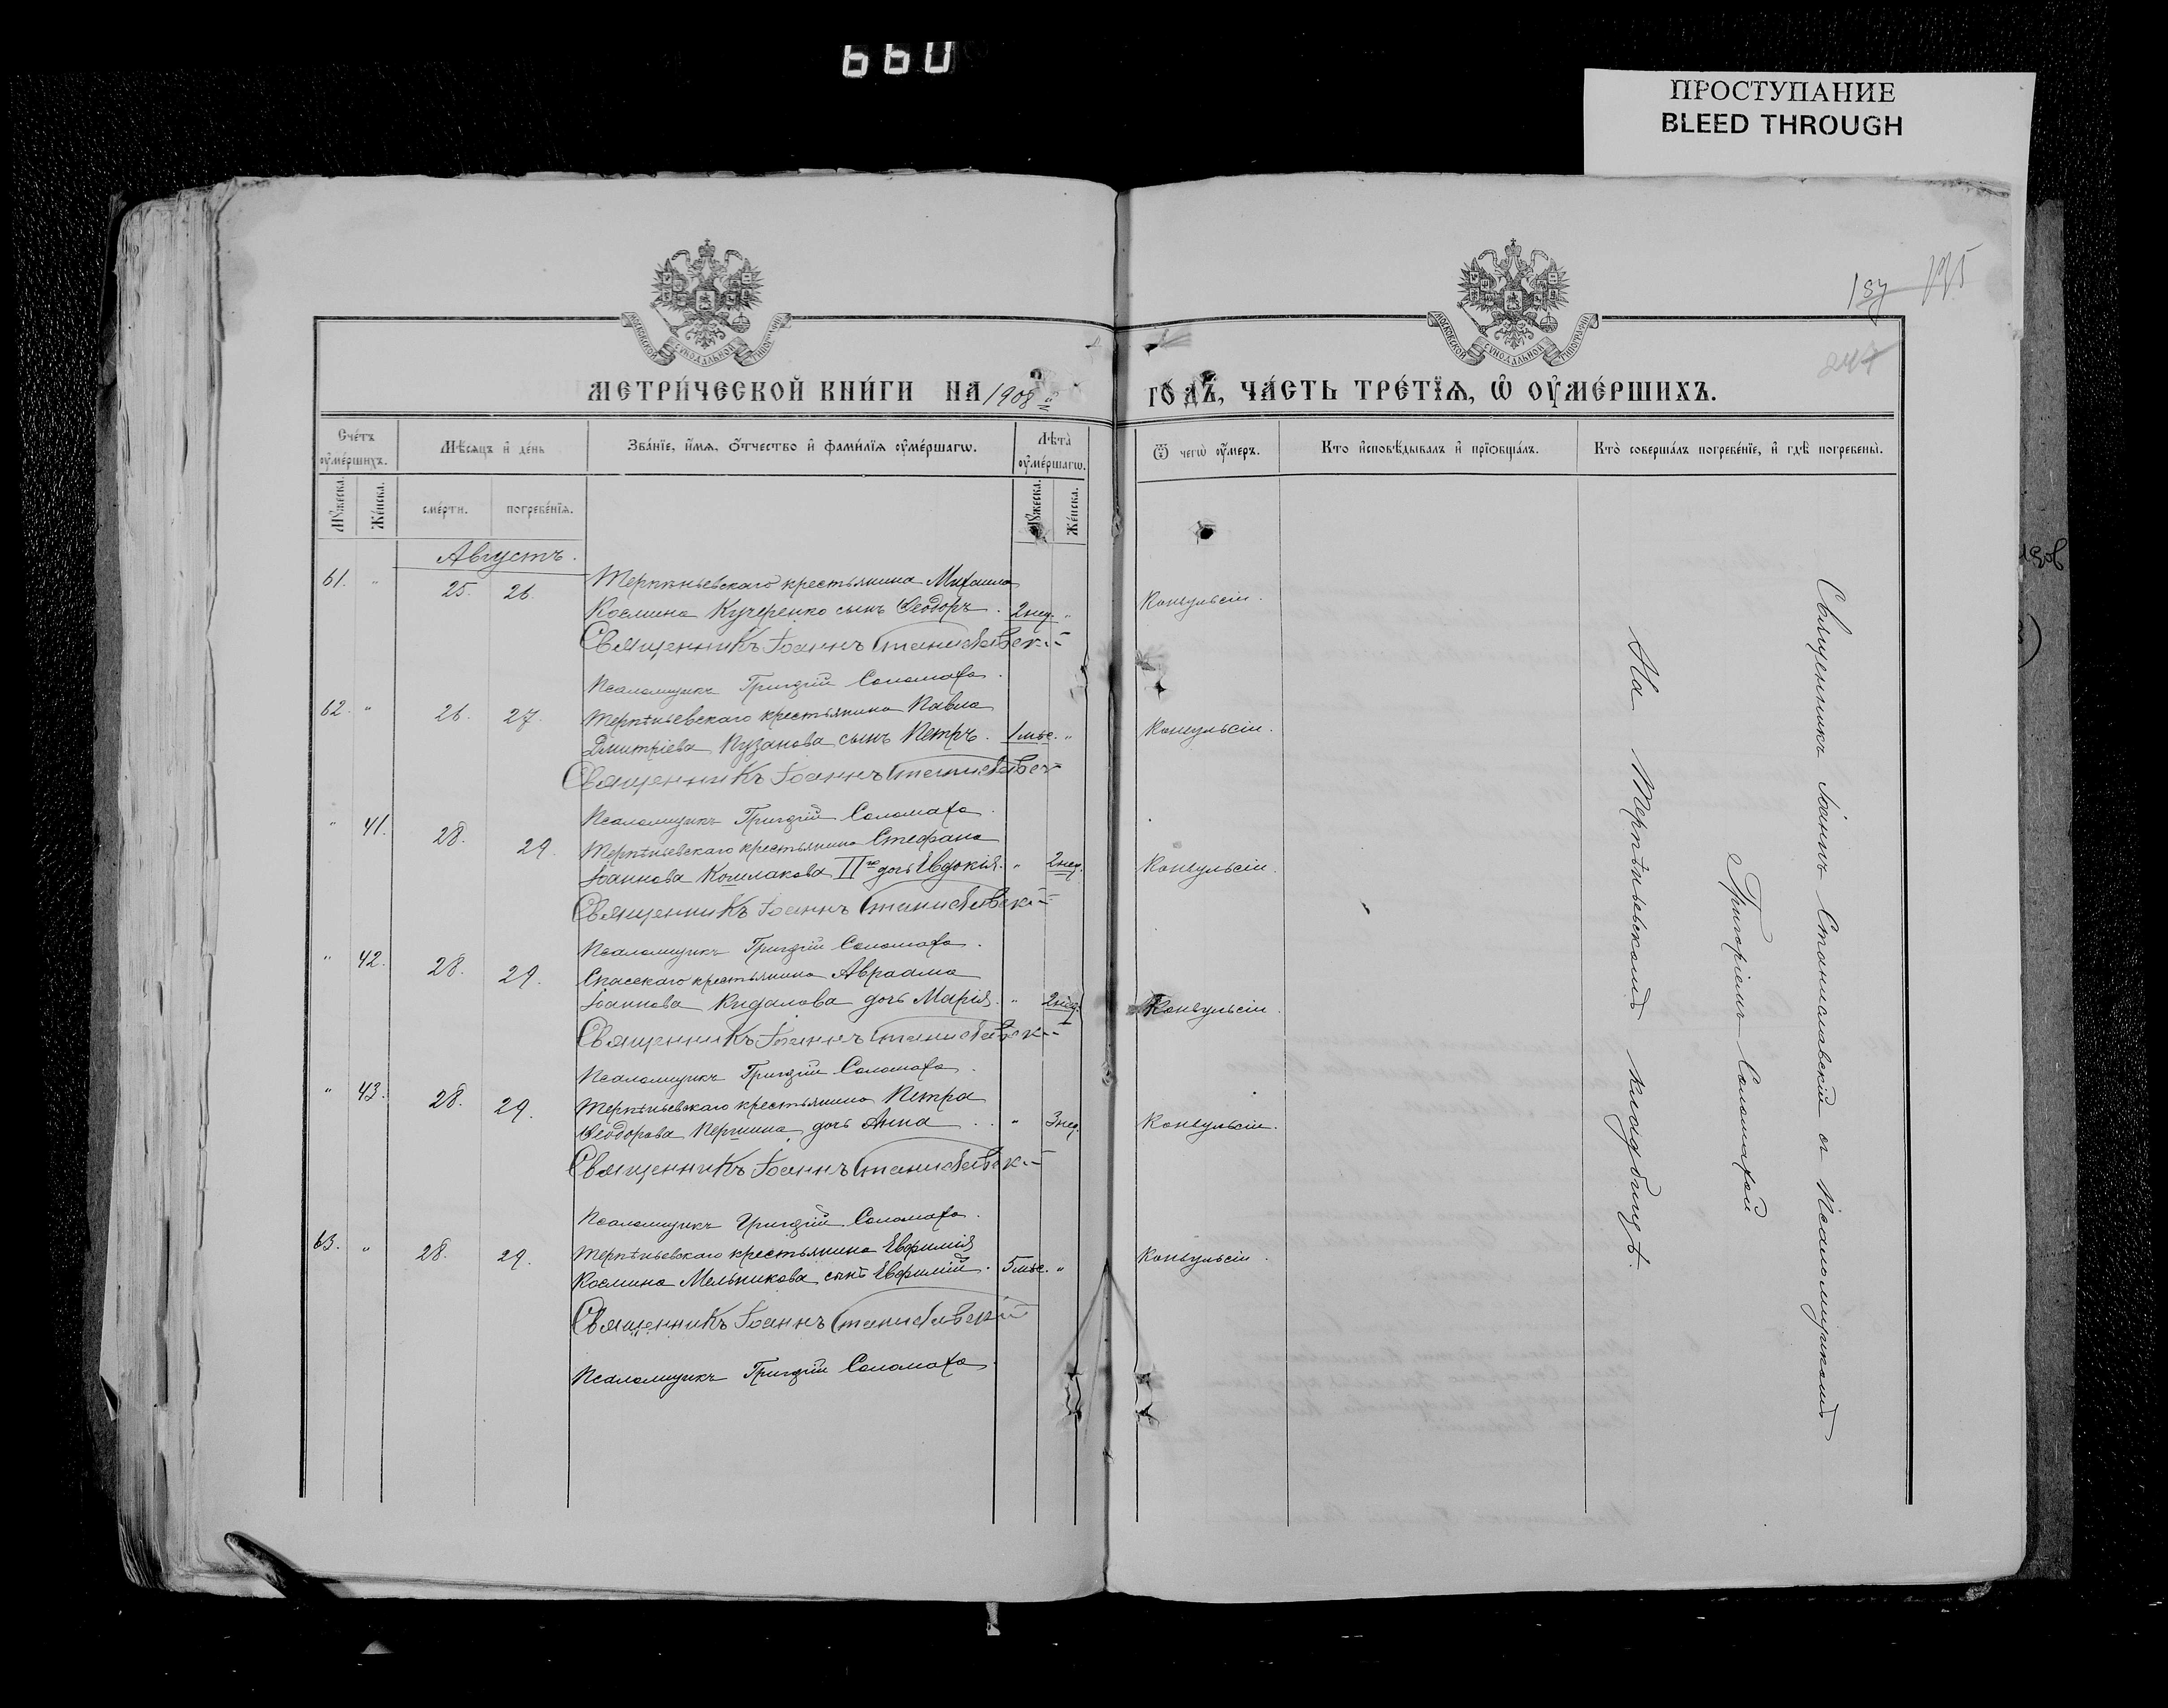 660
ПРОСТУПАНИЕ
BLEED THROUGH
МОСКОВСКОЙ СѴНОДАЛЬНОЙ ТИПОГРАФІИ
МОСКОВСКОЙ СѴНОДАЛЬНОЙ ТИПОГРАФІИ
247
МЕТРИ́ЧЕСКОЙ КНИ́ГИ НА 1908 й ГО́ДЪ, ЧА́СТЬ ТРЕ́ТЇѦ, Ѡ҆ ОУ҆МЕ́РШИХЪ.
Сче́тъ оу҆ме́ршихъ.
Мѣ́сѧцъ и҆ де́нь
Зва́нїе, и҆́мѧ, ѻ҆́тчество и҆ фами́лїѧ оу҆ме́ршагѡ.
Лѣ́та оу҆ме́ршагѡ.
Ѿ чегѡ̀ оу҆́меръ.
Кто̀ и҆сповѣ́дывалъ и҆ прїѡбща́лъ.
Кто̀ соверша́лъ погребе́нїе, и҆ гдѣ̀ погребены̀.
Мꙋ́жеска. Же́нска.
сме́рти. погребе́нїѧ.
Мꙋ́жеска. Же́нска.
Августъ.
61. " 25. 26. Терпѣньевскаго крестьянина Михаила
Космина Кучеренко сынъ Ѳеодоръ. 2 нед. " Конвульсіи.
Священникъ Іоаннъ Станиславскій
Псаломщикъ Григорій Соломаха.
62. " 26. 27. Терпѣньевскаго крестьянина Павла
Димитріева Пузанова сынъ Петръ. 1 мѣс. " Конвульсіи.
Священникъ Іоаннъ Станиславскій
Псаломщикъ Григорій Соломаха.
" 41. 28. 29. Терпѣньевскаго крестьянина Стефана
Іоаннова Кошлакова II го дочь Евдокія. " 2 нед. Конвульсіи.
Священникъ Іоаннъ Станиславскій
Псаломщикъ Григорій Соломаха.
" 42. 28. 29. Спасскаго крестьянина Авраама
Іоаннова Кидалова дочь Марія. " 2 нед. Конвульсіи.
Священникъ Іоаннъ Станиславскій
Псаломщикъ Григорій Соломаха.
" 43. 28. 29. Терпѣньевскаго крестьянина Петра
Ѳеодорова Першина дочь Анна . . " 3 нед. Конвульсіи.
Священникъ Іоаннъ Станиславскій
Псаломщикъ Григорій Соломаха.
63. " 28. 29. Терпѣньевскаго крестьянина Евфимія
Космина Мельникова сынъ Евфимій. 5 мѣс. " Конвульсіи.
Священникъ Іоаннъ Станиславскій
Псаломщикъ Григорій Соломаха.
Священникъ Іоаннъ Станиславскій съ Псаломщикомъ
Григоріемъ Соломахой
На Терпѣньевскомъ кладбищѣ.